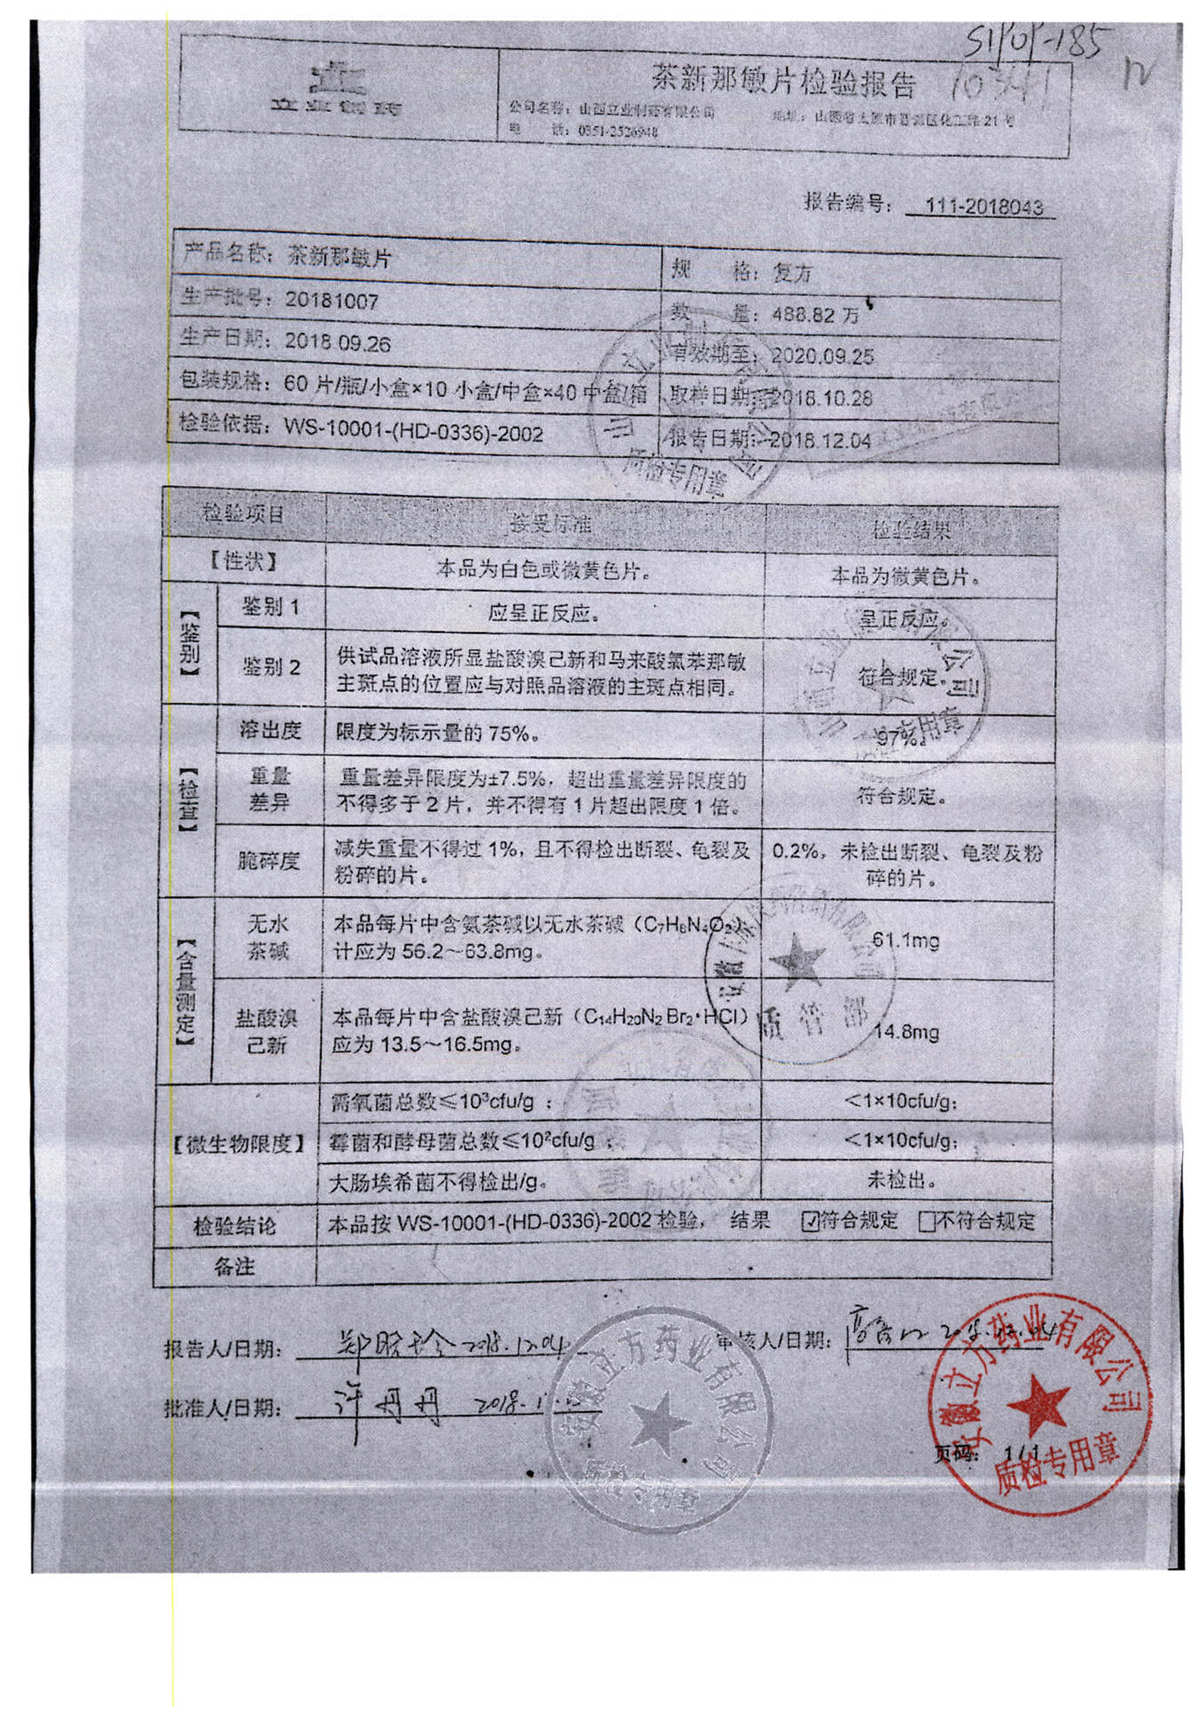 SIPOP-185
立业制药
茶新那敏片检验报告
公司名称：山西立业制药有限公司
电 话：0351-2526948
报告编号：111-2018043
产品名称：茶新那敏片 规 格：复方
生产批号：20181007 数 量：488.82万
生产日期：2018.09.26 有效期至：2020.09.25
包装规格：60片/瓶/小盒×10小盒/中盒×40中盒/箱 取样日期：2018.10.28
检验依据：WS-10001-(HD-0336)-2002 报告日期：2018.12.04
检验项目 接受标准 检验结果
【性状】 本品为白色或微黄色片。 本品为微黄色片。
【鉴别】
鉴别1 应呈正反应。 呈正反应。
鉴别2 供试品溶液所显盐酸溴己新和马来酸氯苯那敏
主斑点的位置应与对照品溶液的主斑点相同。 符合规定。
【检查】
溶出度 限度为标示量的75%。 97%
重量
差异
重量差异限度为±7.5%，超出重量差异限度的
不得多于2片，并不得有1片超出限度1倍。
符合规定。
脆碎度
减失重量不得过1%，且不得检出断裂、龟裂及
粉碎的片。
0.2%，未检出断裂、龟裂及粉
碎的片。
【含量测定】
无水
茶碱
本品每片中含氨茶碱以无水茶碱（C₇H₈N₄O₂）
计应为56.2～63.8mg。
61.1mg
盐酸溴
己新
本品每片中含盐酸溴己新（C₁₄H₂₀N₂Br₂·HCl）
应为13.5～16.5mg。
14.8mg
【微生物限度】
需氧菌总数≤10³cfu/g； ＜1×10cfu/g；
霉菌和酵母菌总数≤10²cfu/g； ＜1×10cfu/g；
大肠埃希菌不得检出/g。 未检出。
检验结论 本品按WS-10001-(HD-0336)-2002检验， 结果 ☑符合规定 □不符合规定
备注
报告人/日期： 2018.12.04 审核人/日期：
批准人/日期：许丹丹
页码：1/1
安徽立方药业有限公司
质检专用章
安徽立方药业有限公司
质检专用章
质检专用章
质管部